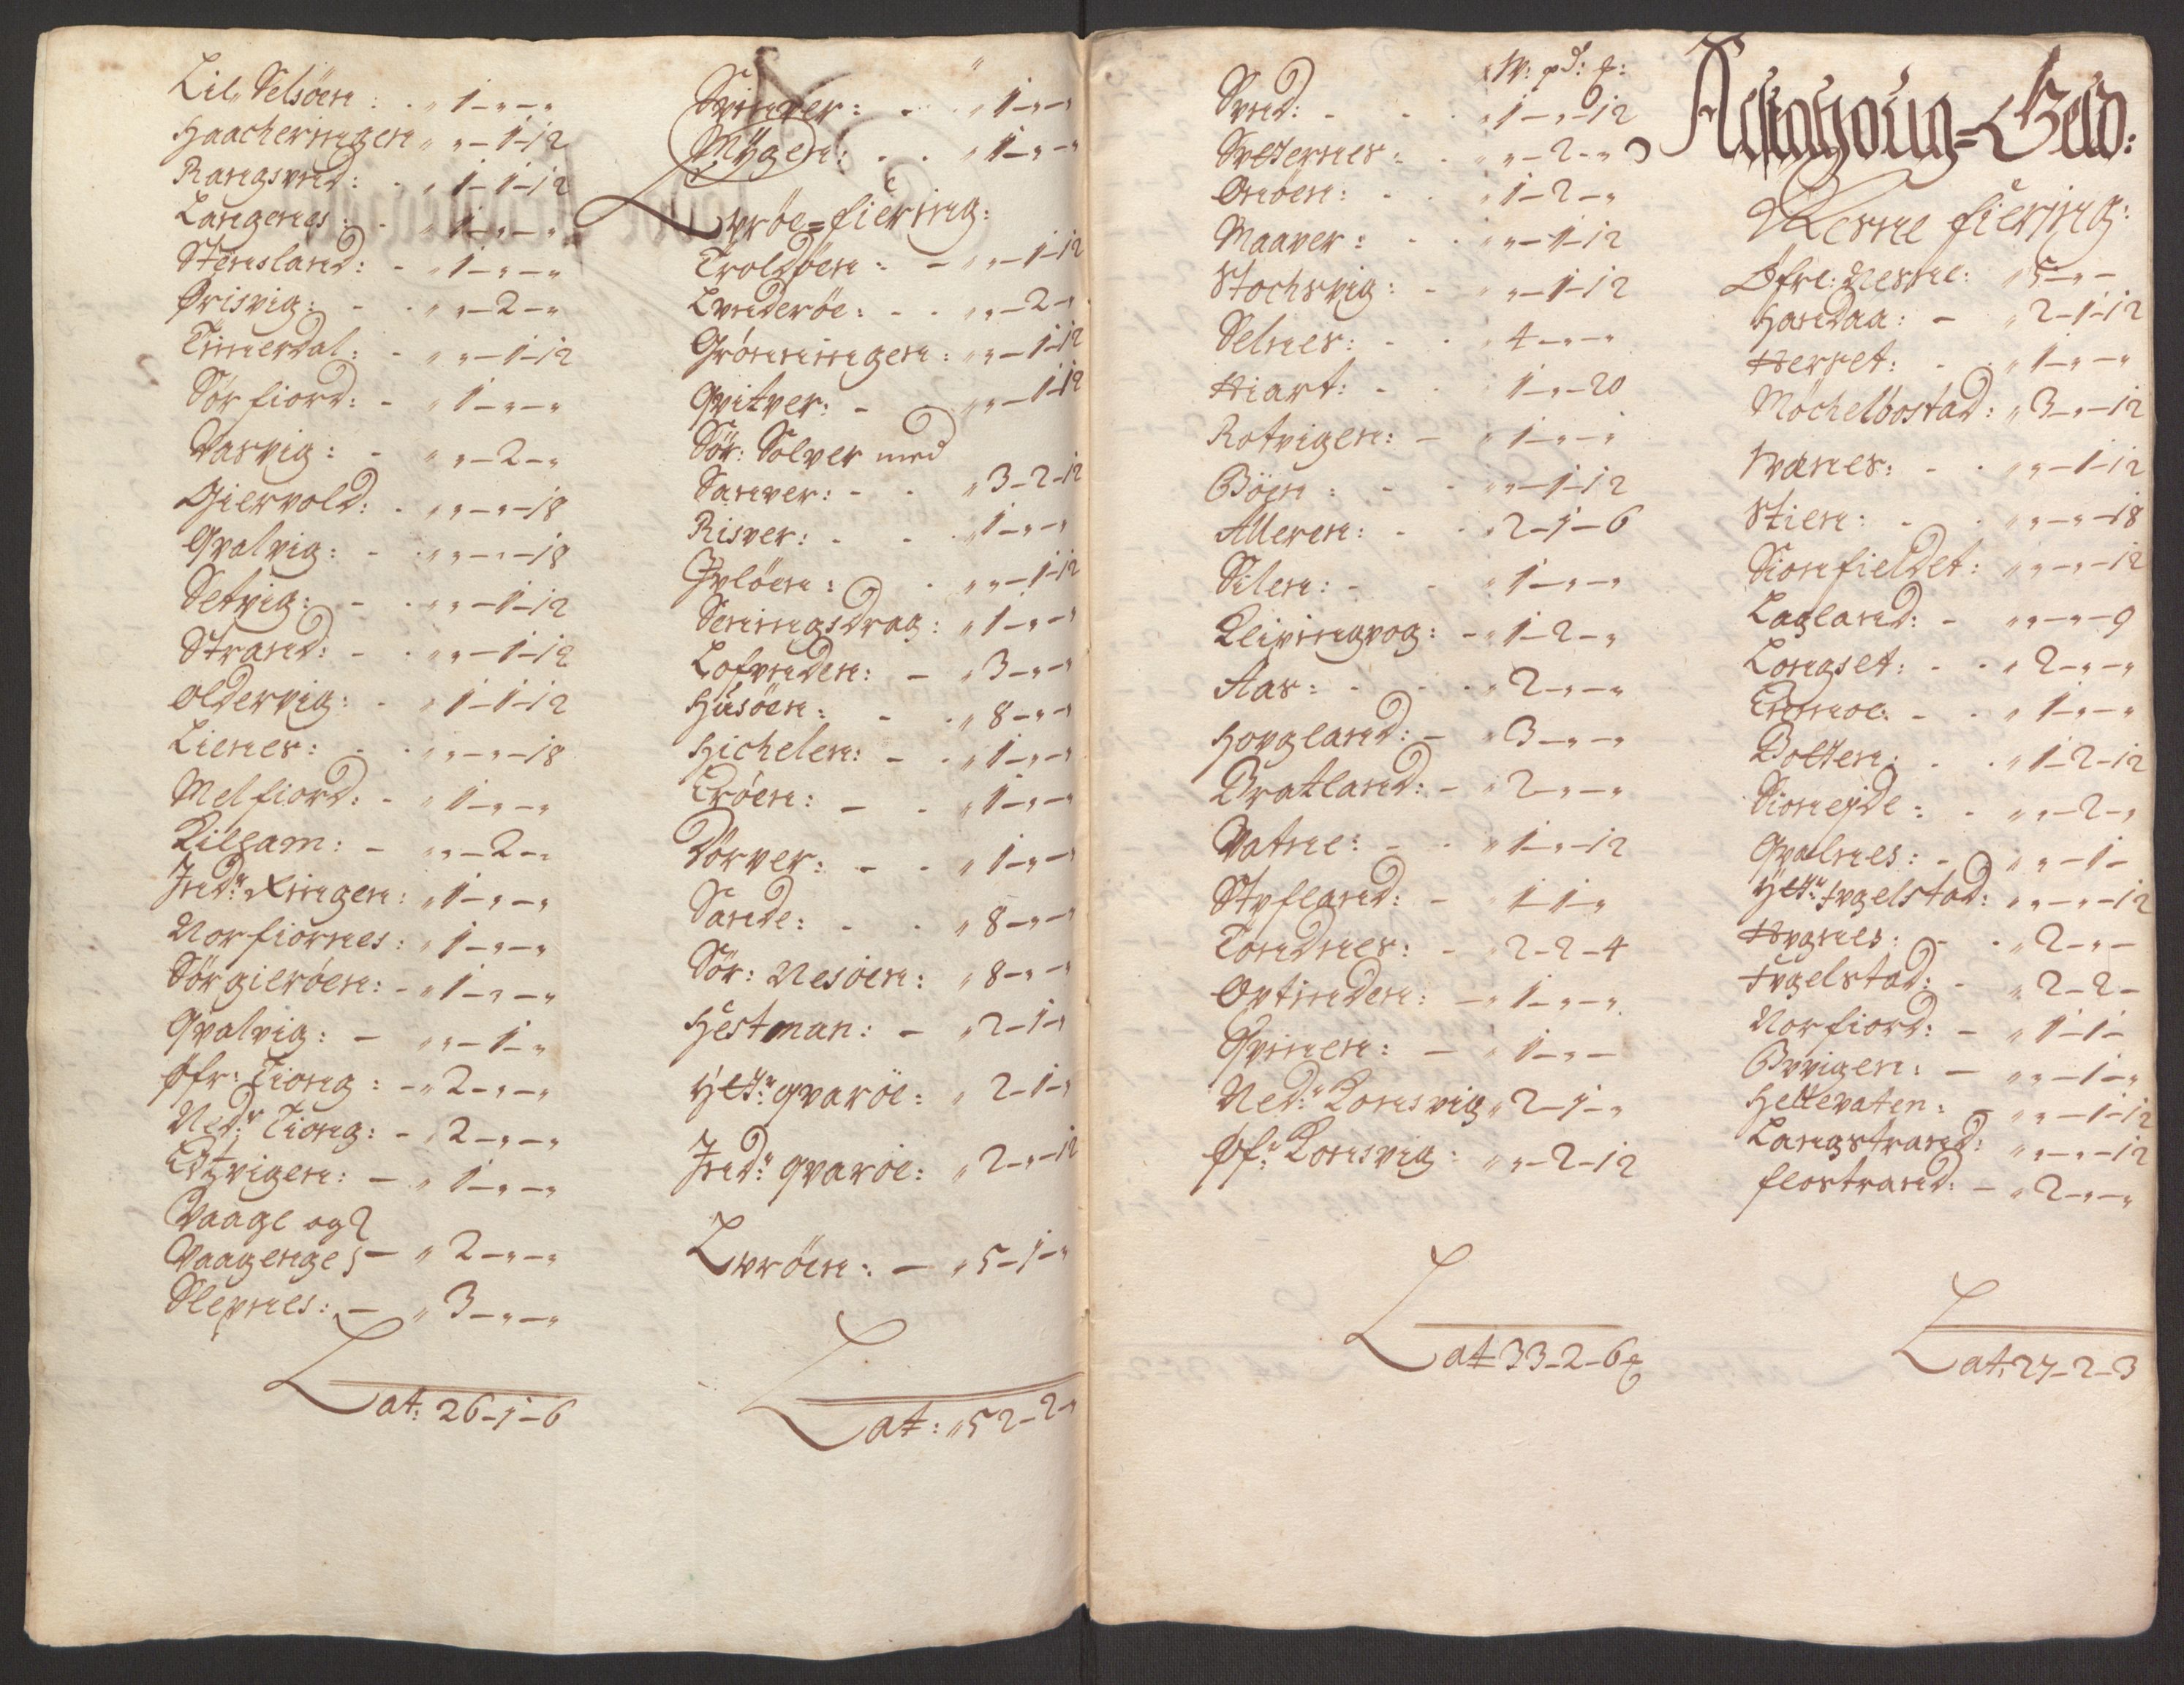 Lil„ Selsöen : . „ 1 – „ – „
Haacheringen „ „ – 1 – 12
Rangsund: - „ 1 – 1 – 12
Langenes : - „ 1 – „ – „
Stensland: - „ 1 – „ – „
Ørisvig: - . „ „ – 2 – „
Tinnerdal: - „ „ – 1 – 12
Sörfiord: - „ 1 – „ – „
Vasvig: - „ „ – 2 – „
Giervold: . „ „ – „ – 18
Qvalvig: - . „ „ – „ – 18
Setvig: - . „ „ – 1 – 12
Strand: - . „ „ – 1 – 12
Oldervig: - „ 1 – 1 – 12
Lienes: - . „ „ – „ – 18
Melfiord: - „ 1 – „ – „
Kilgam: - „ „ – 2 – „
Ind:r Xingen: „ 1 – „ – „
Norfiornes: „ 1 – „ – „
Sörgieröen: - „ 1 – „ – „
Qvalvig: – „ „ – 1 – „
Øfr: Tiong: – „ 2 – „ – „
Ned:r Tiong: – „ 2 – „ – „
Vaage og
Vaagenge – „ 2 – „ – „
Slepnes: – „ 3 – „ – „
Lat: 26 – 1 – 6
Svinver: - . „ 1 – „ – „
Mÿgen: - . „ 1 – „ – „
Lvröe = fiering:
Troldöen: – „ „ – 1 – 12
Lvnderöe: - . „ „ – 2 – „
Grönningen: „ „ – 1 – 12
Qvitver: – „ „ – 1 – 12
Sör: Solver med
Sanver: - . „ 3 – 2 – 12
Risver: - . „ 1 – „ – „
Gvlöen: . „ „ – 1 – 12
Seningsdrag: „ 1 – „ – „
Lofvnden: – „ 3 – „ – „
Husöen: - . „ 8 – „ – „
Hichelen: – . „ 1 – „ – „
Tröen: – . „ 1 – „ – „
Dörver: – . „ 1 – „ – „
Sande: - . „ 8 – „ – „
Sör: Nesöen: „ 8 – „ – „
Hestman: – „ 2 – 1 – „
Ytt:r qvaröe: „ 2 – 1 – „
Ind:r qvaröe: „ 2 – „ – 12
Lvröen: – „ 5 – 1 – „
Lat: „ 52 – 2 – „
W: pd: £:
Svnd: - . „ 1 – „ – 12
Svtternes: . „ „ – 2 – „
Onöen: - . „ 1 – 2 – „
Maaver: - . „ „ – 1 – 12
Stochsvig: - „ „ – 1 – 12
Selnes: - . „ 4 – „ – „
Hiart: - . 1 – „ – 20
Rotvigen: – „ 1 – „ – „
Böen: - . „ „ – 1 – 12
Alleren: - . „ 2 – 1 – 6
Silen: - . „ 1 – „ – „
Kleivingvog: – „ 1 – 2 – „
Aas: - . „ 2 – „ – „
Hovgland: – „ 3 – „ – „
Bratland: – „ 2 – „ – „
Vatne: - . „ 1 – „ – 12
Stvfland: – „ 1 – 1 – „
Tondnes: – „ 2 – 2 – 4
Ovtinden: – „ 1 – „ – „
Qvinen: – „ 1 – „ – „
Ned:r Konsvig „ 2 – 1 – „
Øf:r Konsvig: „ „ – 2 – 12
Lat 33 – 2 – 6 £
Nesne fiering:
Øfre: Nesne: „ 5 – „ –
Handaa: – „ 2 – 1 – 12
Herset: - . „ 1 – „ – „
Mochelbostad: „ 3 – „ – 12
Wænes: - . „ „ – 1 – 12
Stien: - . „ „ – „ – 18
Sionfieldet: „ „ – „ – 12
Lagland: – „ „ – „ – 9
Longset: - . „ 2 – „ – „
Tommoe: - . „ 1 – „ – „
Bolten: - . „ 1 – 2 – 12
Sionejde: - „ „ – 2 – „
Qvalnes: - . „ „ – 1 –
Ytt:r Fvgelstad: „ „ – „ – 12
Hvgnes: - . „ 2 – „ –
Fvgelstad: - „ 2 – 2 –
Norfiord: – „ 1 – 1 –
Bvvigen: – „ „ – 1 – „
Hellevaten: – „ „ – 1 – 12
Langstrand: „ „ – „ – 12
flostrand: – „ 2 – „ – „
Lat: 27 – 2 – 3